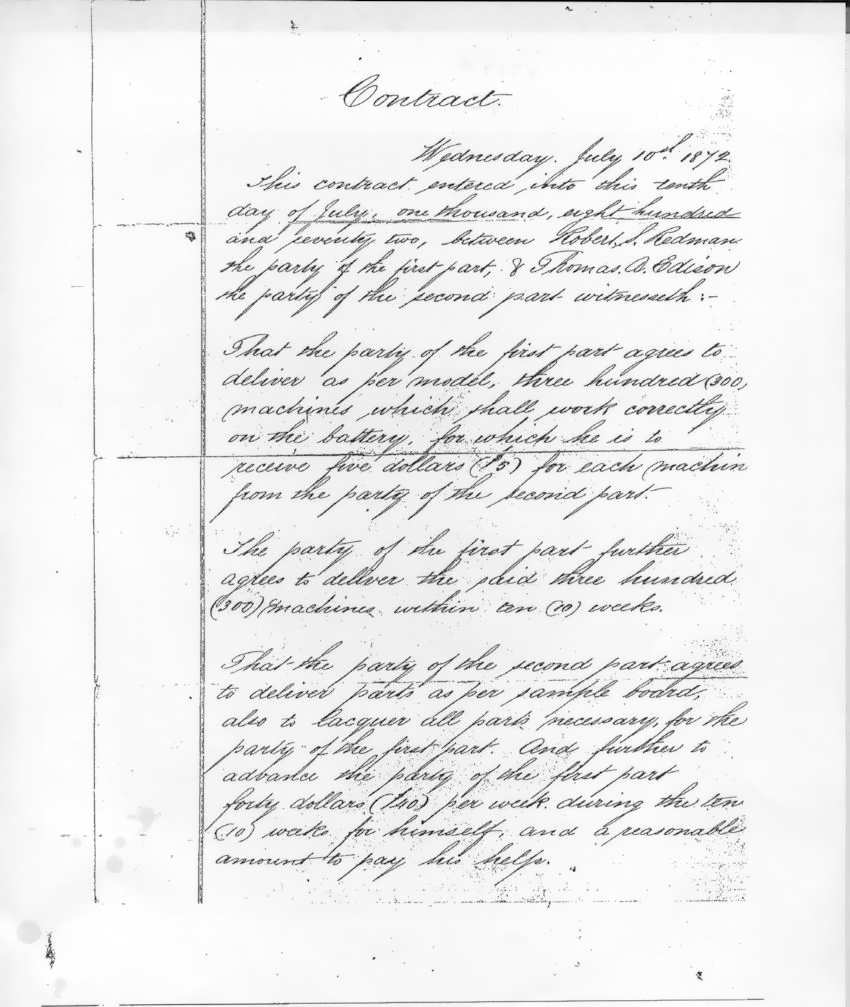 Contract.
Wednesday. July 10th. 1872.
This contract entered into this tenth
day of July, one thousand, eight hundred
and seventy two, between Robert, S. Redman
the party of the first part, & Thomas. A. Edison
the party of the second part witnesseth:-
That the party of the first part agrees to
deliver as per model, three hundred (300)
machines which shall work correctly
on the battery, for which he is to
receive five dollars ($5) for each machin
from the party of the second part.
The party of the first part further
agrees to deliver the said three hundred
(300) machines within ten (10) weeks.
That the party of the second part agrees
to deliver parts as per sample board,
also to lacquer all parts necessary, for the
party of the first part. And further to
advance the party of the first part
forty dollars ($40) per week during the ten
(10) weeks for himself, and a reasonable
amount to pay his help.